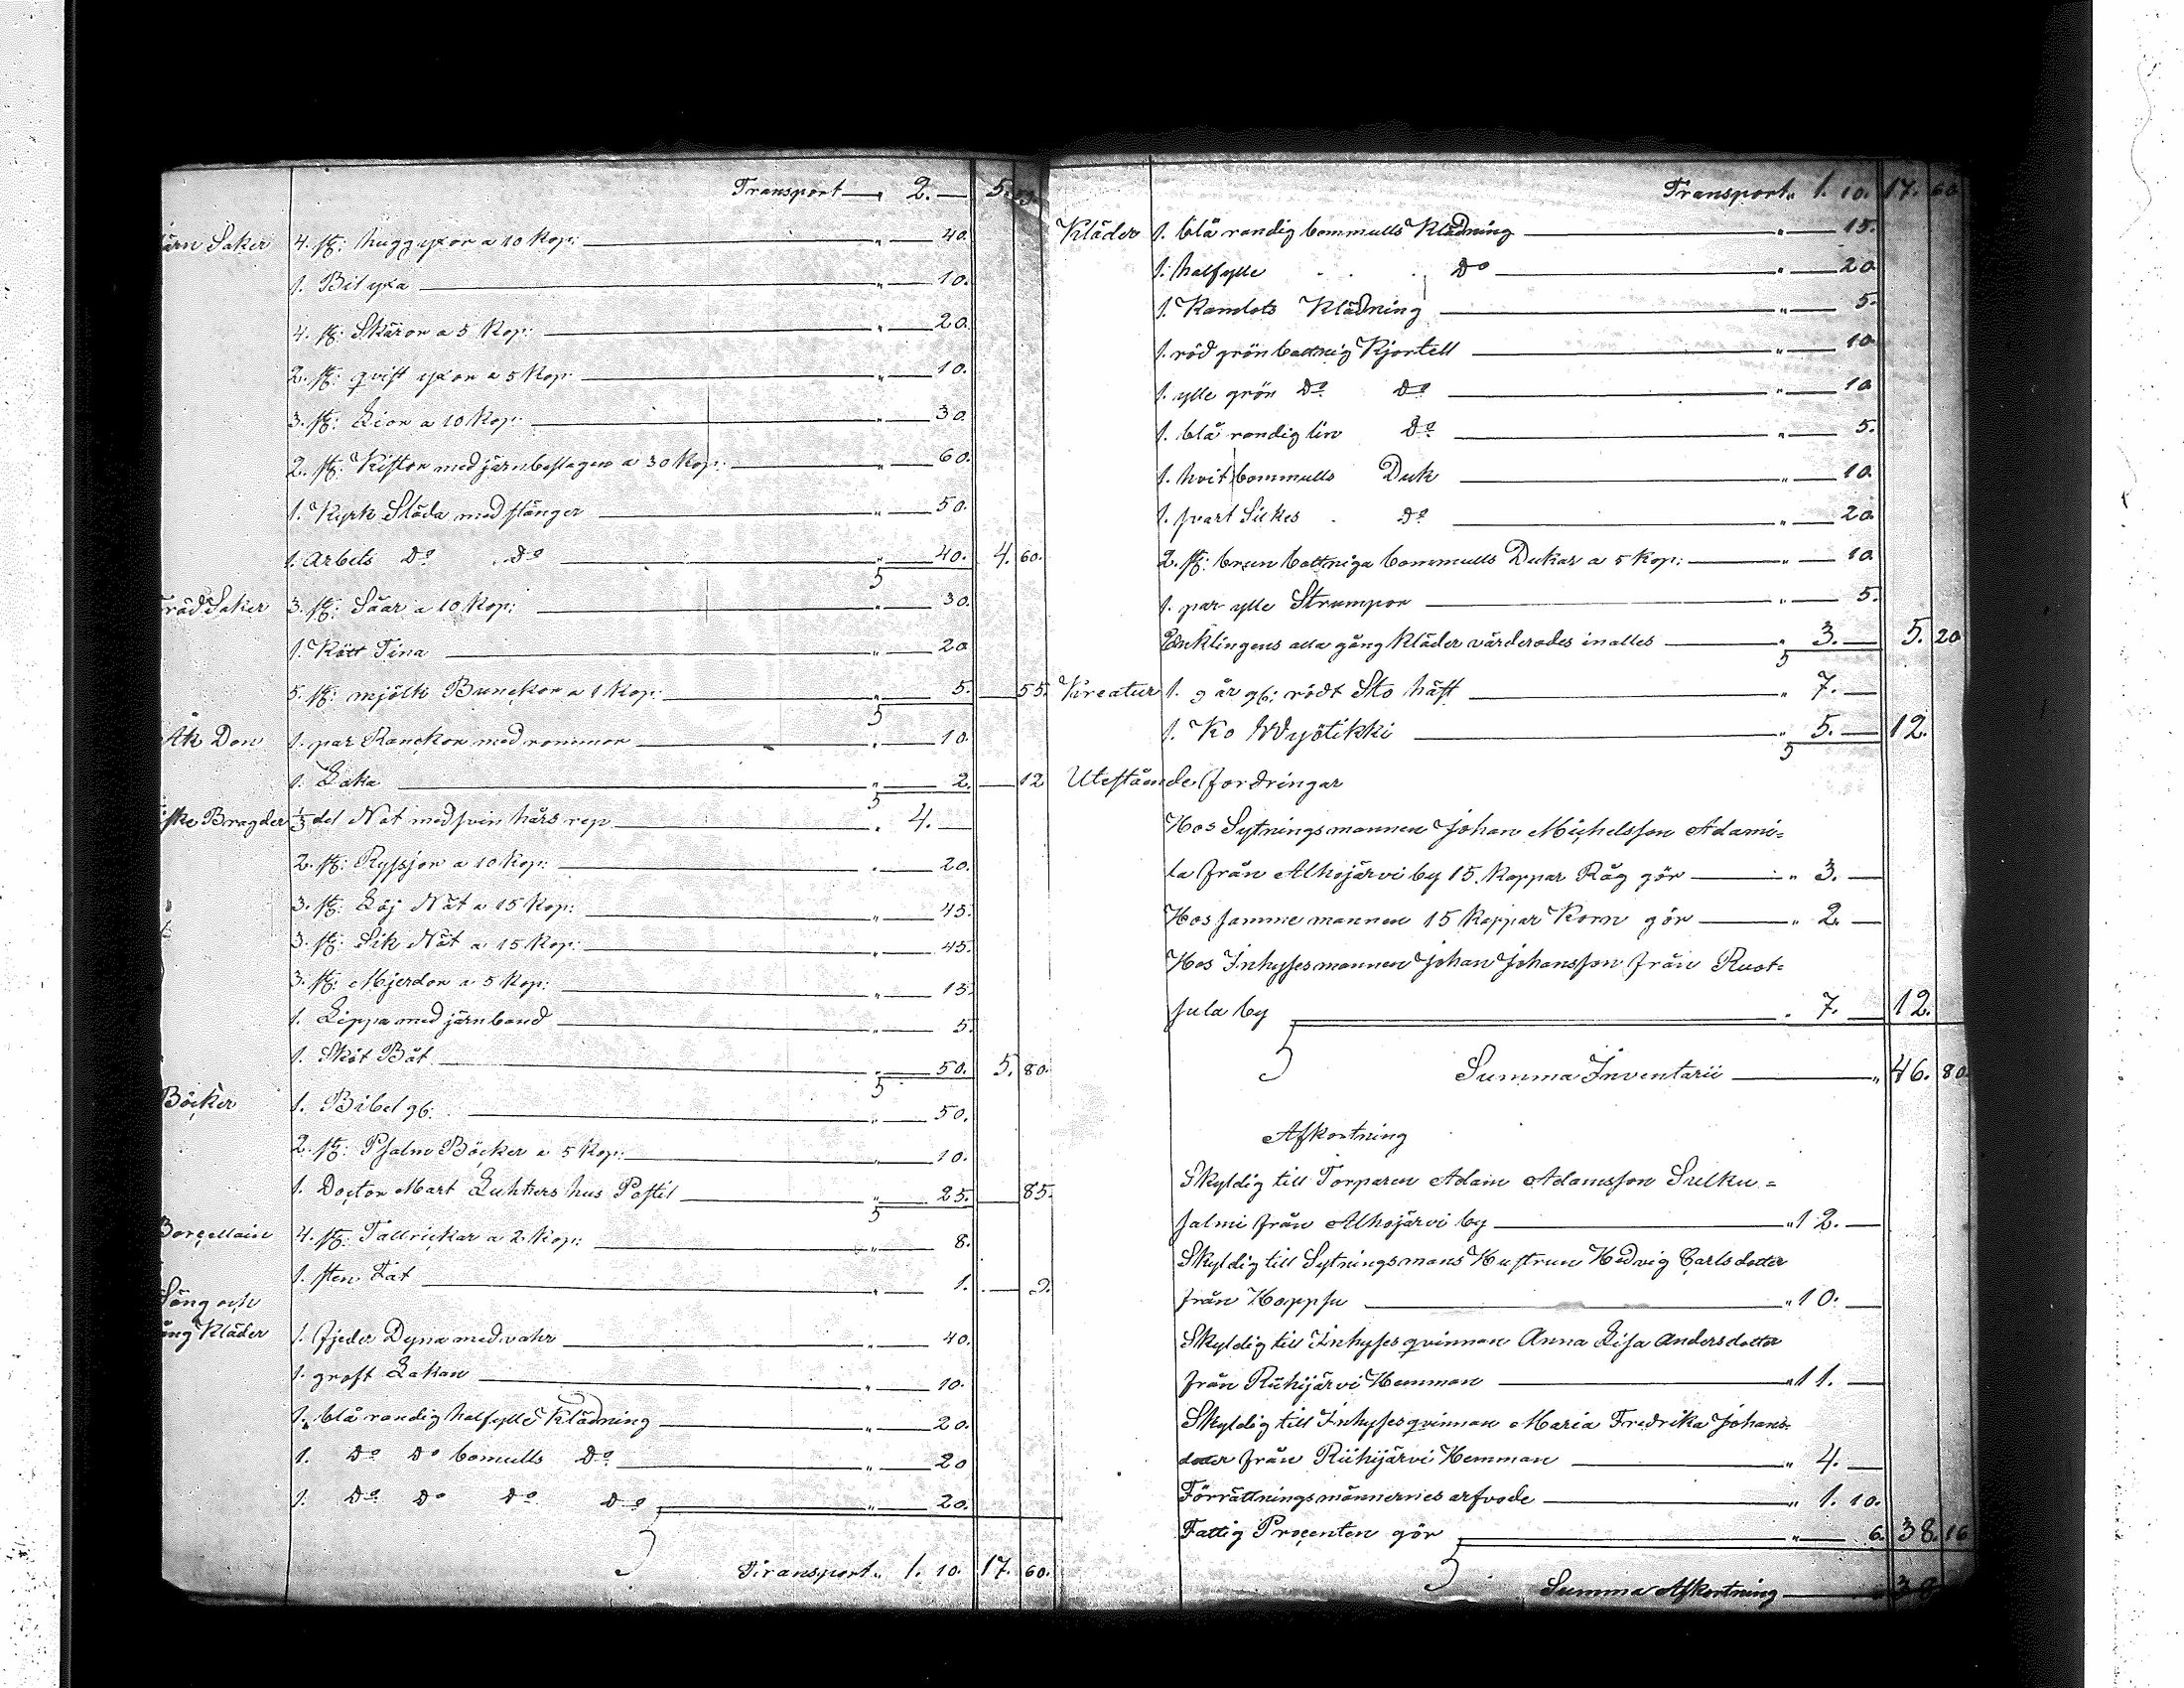 Transport „ 2. — 5. 59.
järn Saker 4. st: huggyxor a 10 Kop: „ 40.
1. Bilyxa „ 10.
4. st: Skäror a 5 Kop: „ 20.
2. st: qvist yxor a 5 Kop: „ 10.
3. st: Lior a 10 Kop: „ 30.
2. st: Kistor med järnbeslagen a 30 Kop: „ 60.
1. Kyrk Släda med stänger „ 50.
1. Arbets Do Do „ 40. 4. 60.
Träd Saker 3. st: Såar a 10 Kop: „ 30.
1. Kött Tina „ 20.
5. st: mjölk Bunckor a 1 Kop: „ 5. — 55.
Åk Don 1. par Ranckor med rommor „ 10.
1. Laka „ 2. — 12
iske Bragder 1/3 del Not med svin hårs rep „ 4. —
2. st: Ryssjor a 10 Kop: „ 20.
3. st: Löj Nät a 15 Kop: „ 45.
3. st: Sik Nät a 15 Kop: „ 45.
3. st: Mjerdor a 5 Kop: „ 15.
1. Lippa med järnband „ 5.
1. Sköt Båt „ 50. 5. 80.
Böcker 1. Bibel gb: „ 50.
2. st: Psalm Böcker a 5 Kop: „ 10.
1. Doctor Mart Luhters hus Postil „ 25. — 85.
Borcellain 4. st: Tallrickar a 2 Kop: „ 8.
1. sten Fat „ 1. — 9.
Säng och
ång Kläder 1. fjeder Dyna med vahr „ 40.
1. groft Lakan „ 10.
1. blå randig halfylle Klädning „ 20.
1. Do Do bomulls Do „ 20
1. Do Do Do Do „ 20.
Transport „ 1. 10. 17. 60.
Transport „ 1. 10. 17. 60
Kläder 1. blå randig bommulls Klädning „ 15.
1. halfylle Do „ 20
1. Kamlots Klädning „ 5.
1. röd grön battnig Kjortell „ 10
1. ylle grön Do Do „ 10
1. blå randig lin Do „ 5.
1. hvit bommulls Duk „ 10.
1. svart Silkes Do „ 20
2. st: brun battniga bommulls Dukar a 5 Kop: „ 10
1. par ylle Strumpor „ 5.
Enklingens alla gång Kläder värderades inalles „ 3. — 5. 20
Kreatur 1. 9 år gb: rödt Sto häst „ 7. —
1. Ko Wyötikki „ 5. — 12.
Utestående fordringar
Hos Sytningsmannen Johan Michelsson Adami=
la från Alhojärvi by 15. Kappar Råg gör „ 3. —
Hos samme mannen 15 Kappar Korn gör „ 2. —
Hos Inhysesmannen Johan Johansson från Ruot=
sula by „ 7. — 12.
Summa Inventarii „ 46. 80.
Afkortning
Skyldig till Torparen Adam Adamsson Sulku=
salmi från Alhojärvi by „ 12. —
Skyldig till Sytningsmans Hustrun Hedvig Carlsdotter
från Hoppsu „ 10. —
Skyldig till Inhysesqvinnan Anna Lisa Andersdotter
från Riihijärvi Hemman „ 11. —
Skyldig till Inhysesqvinnan Maria Fredrika Johans=
dotter från Riihijärvi Hemman „ 4. —
Förrättningsmännernes arfvode „ 1. 10.
Fattig Procenten gör „ 6. 38. 16
Summa Afkortning 38